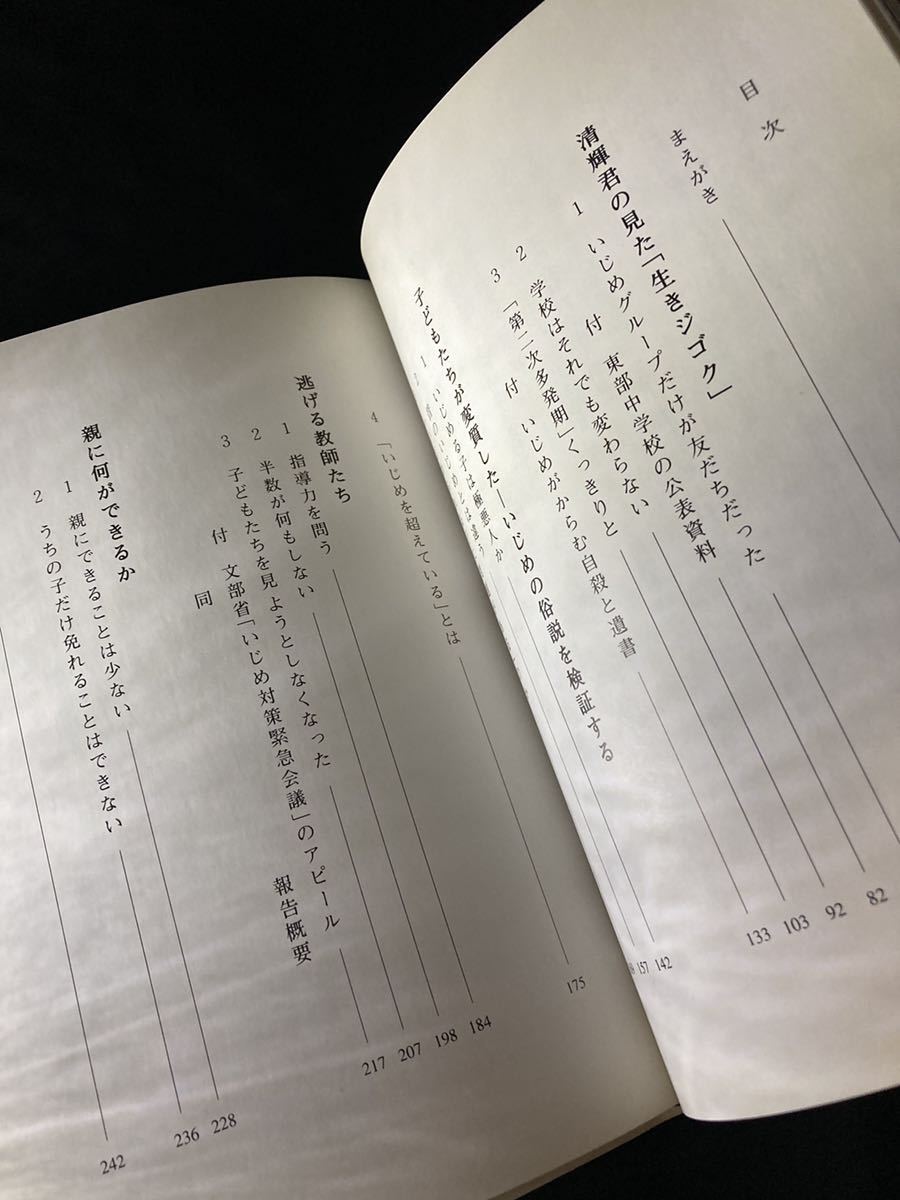 目次
まえがき
清輝君の見た「生きジゴク」
1 いじめグループだけが友だちだった
付 東部中学校の公表資料
2 学校はそれでも変わらない
3 「第二次多発期」くっきりと
付 いじめがからむ自殺と遺書
子どもたちが変質した―いじめの俗説を検証する
1 いじめる子は極悪人か
のいじめとは違う
82
92
103
133
142
157
4 「いじめを超えている」とは
175
逃げる教師たち
1 指導力を問う
2 半数が何もしない
3 子どもたちを見ようとしなくなった
付 文部省「いじめ対策緊急会議」のアピール
同 報告概要
184
198
207
217
親に何ができるか
1 親にできることは少ない
2 うちの子だけ免れることはできない
228
236
242